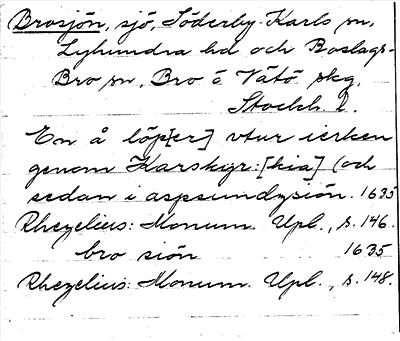 Brosjön, sjö, Söderby-Karls sn,
Lyhundra hd och Boslags-
Bro sn, Bro o Vätö skg,
Stockh. l.
En å löp[er] vtur ierken
genom Karskyr:[kia] (och
sedan i aspsundzsiön. 1635
Rhezelius: Monum. Upl., s. 146.
bro siön 1635
Rhezelius: Monum. Upl., s. 148.